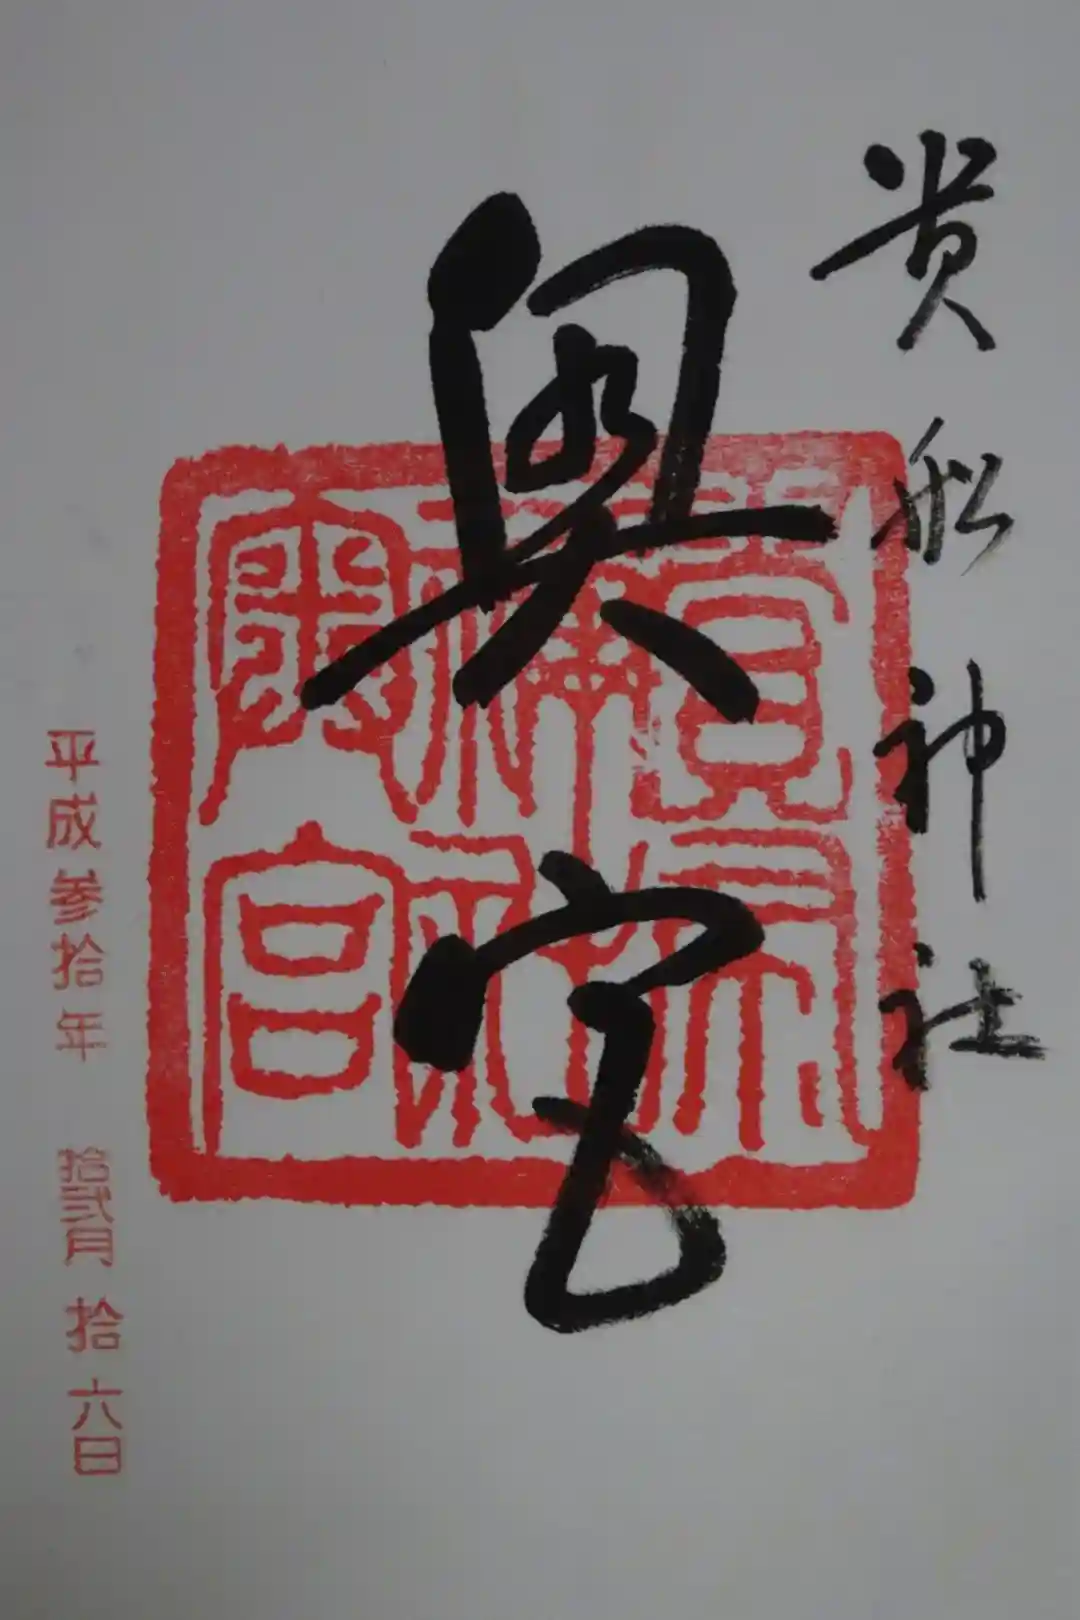 貴船神社
奥宮
平成参拾年 拾弐月 拾六日